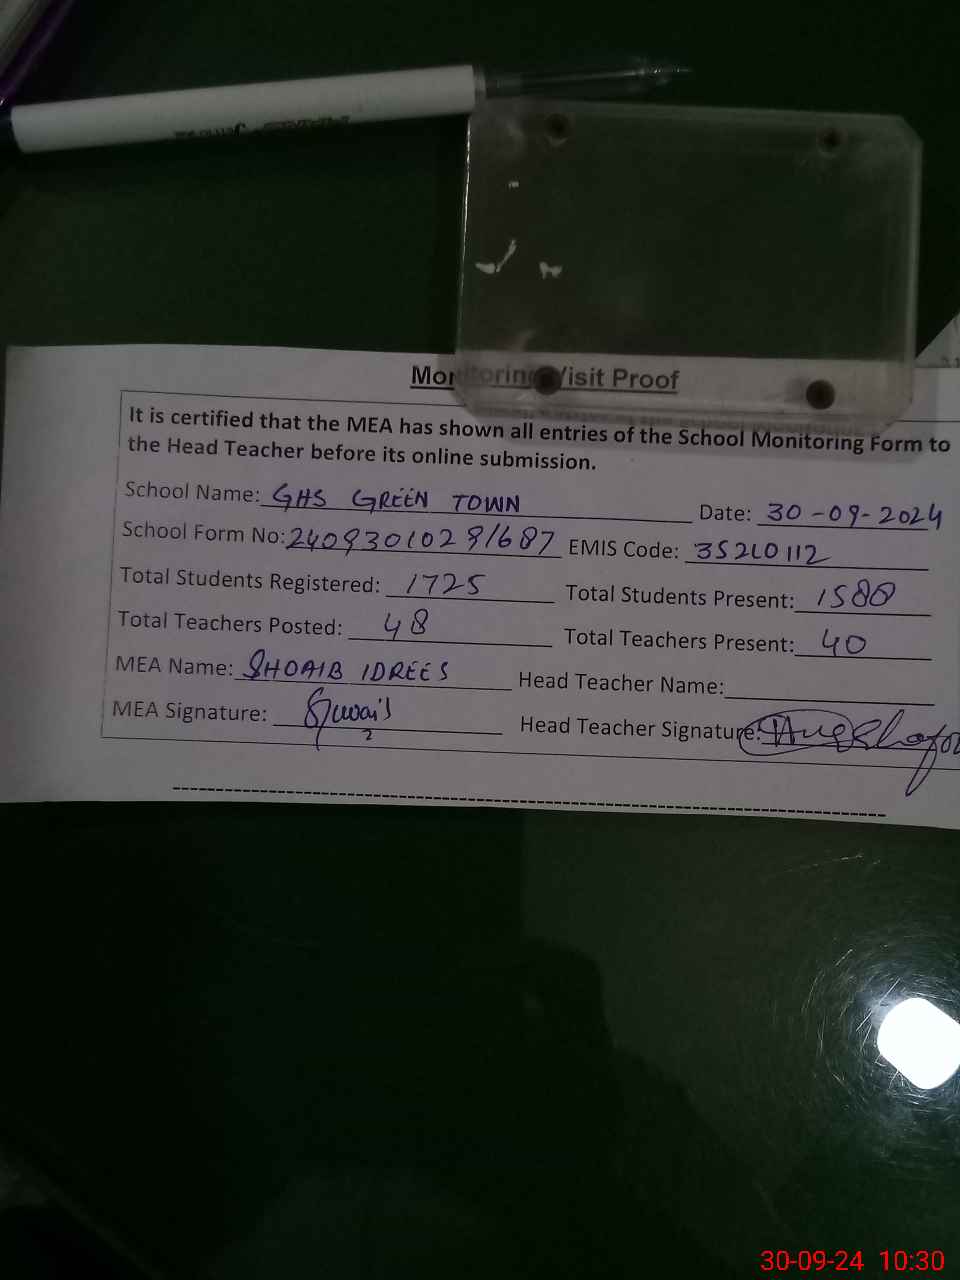 Monitoring Visit Proof
It is certified that the MEA has shown all entries of the School Monitoring Form to
the Head Teacher before its online submission.
School Name: GHS GREEN TOWN Date: 30-09-2024
School Form No: 24093010291687 EMIS Code: 35210112
Total Students Registered: 1725 Total Students Present: 1588
Total Teachers Posted: 48 Total Teachers Present: 40
MEA Name: SHOAIB IDREES Head Teacher Name:
MEA Signature: Head Teacher Signature:
30-09-24 10:30